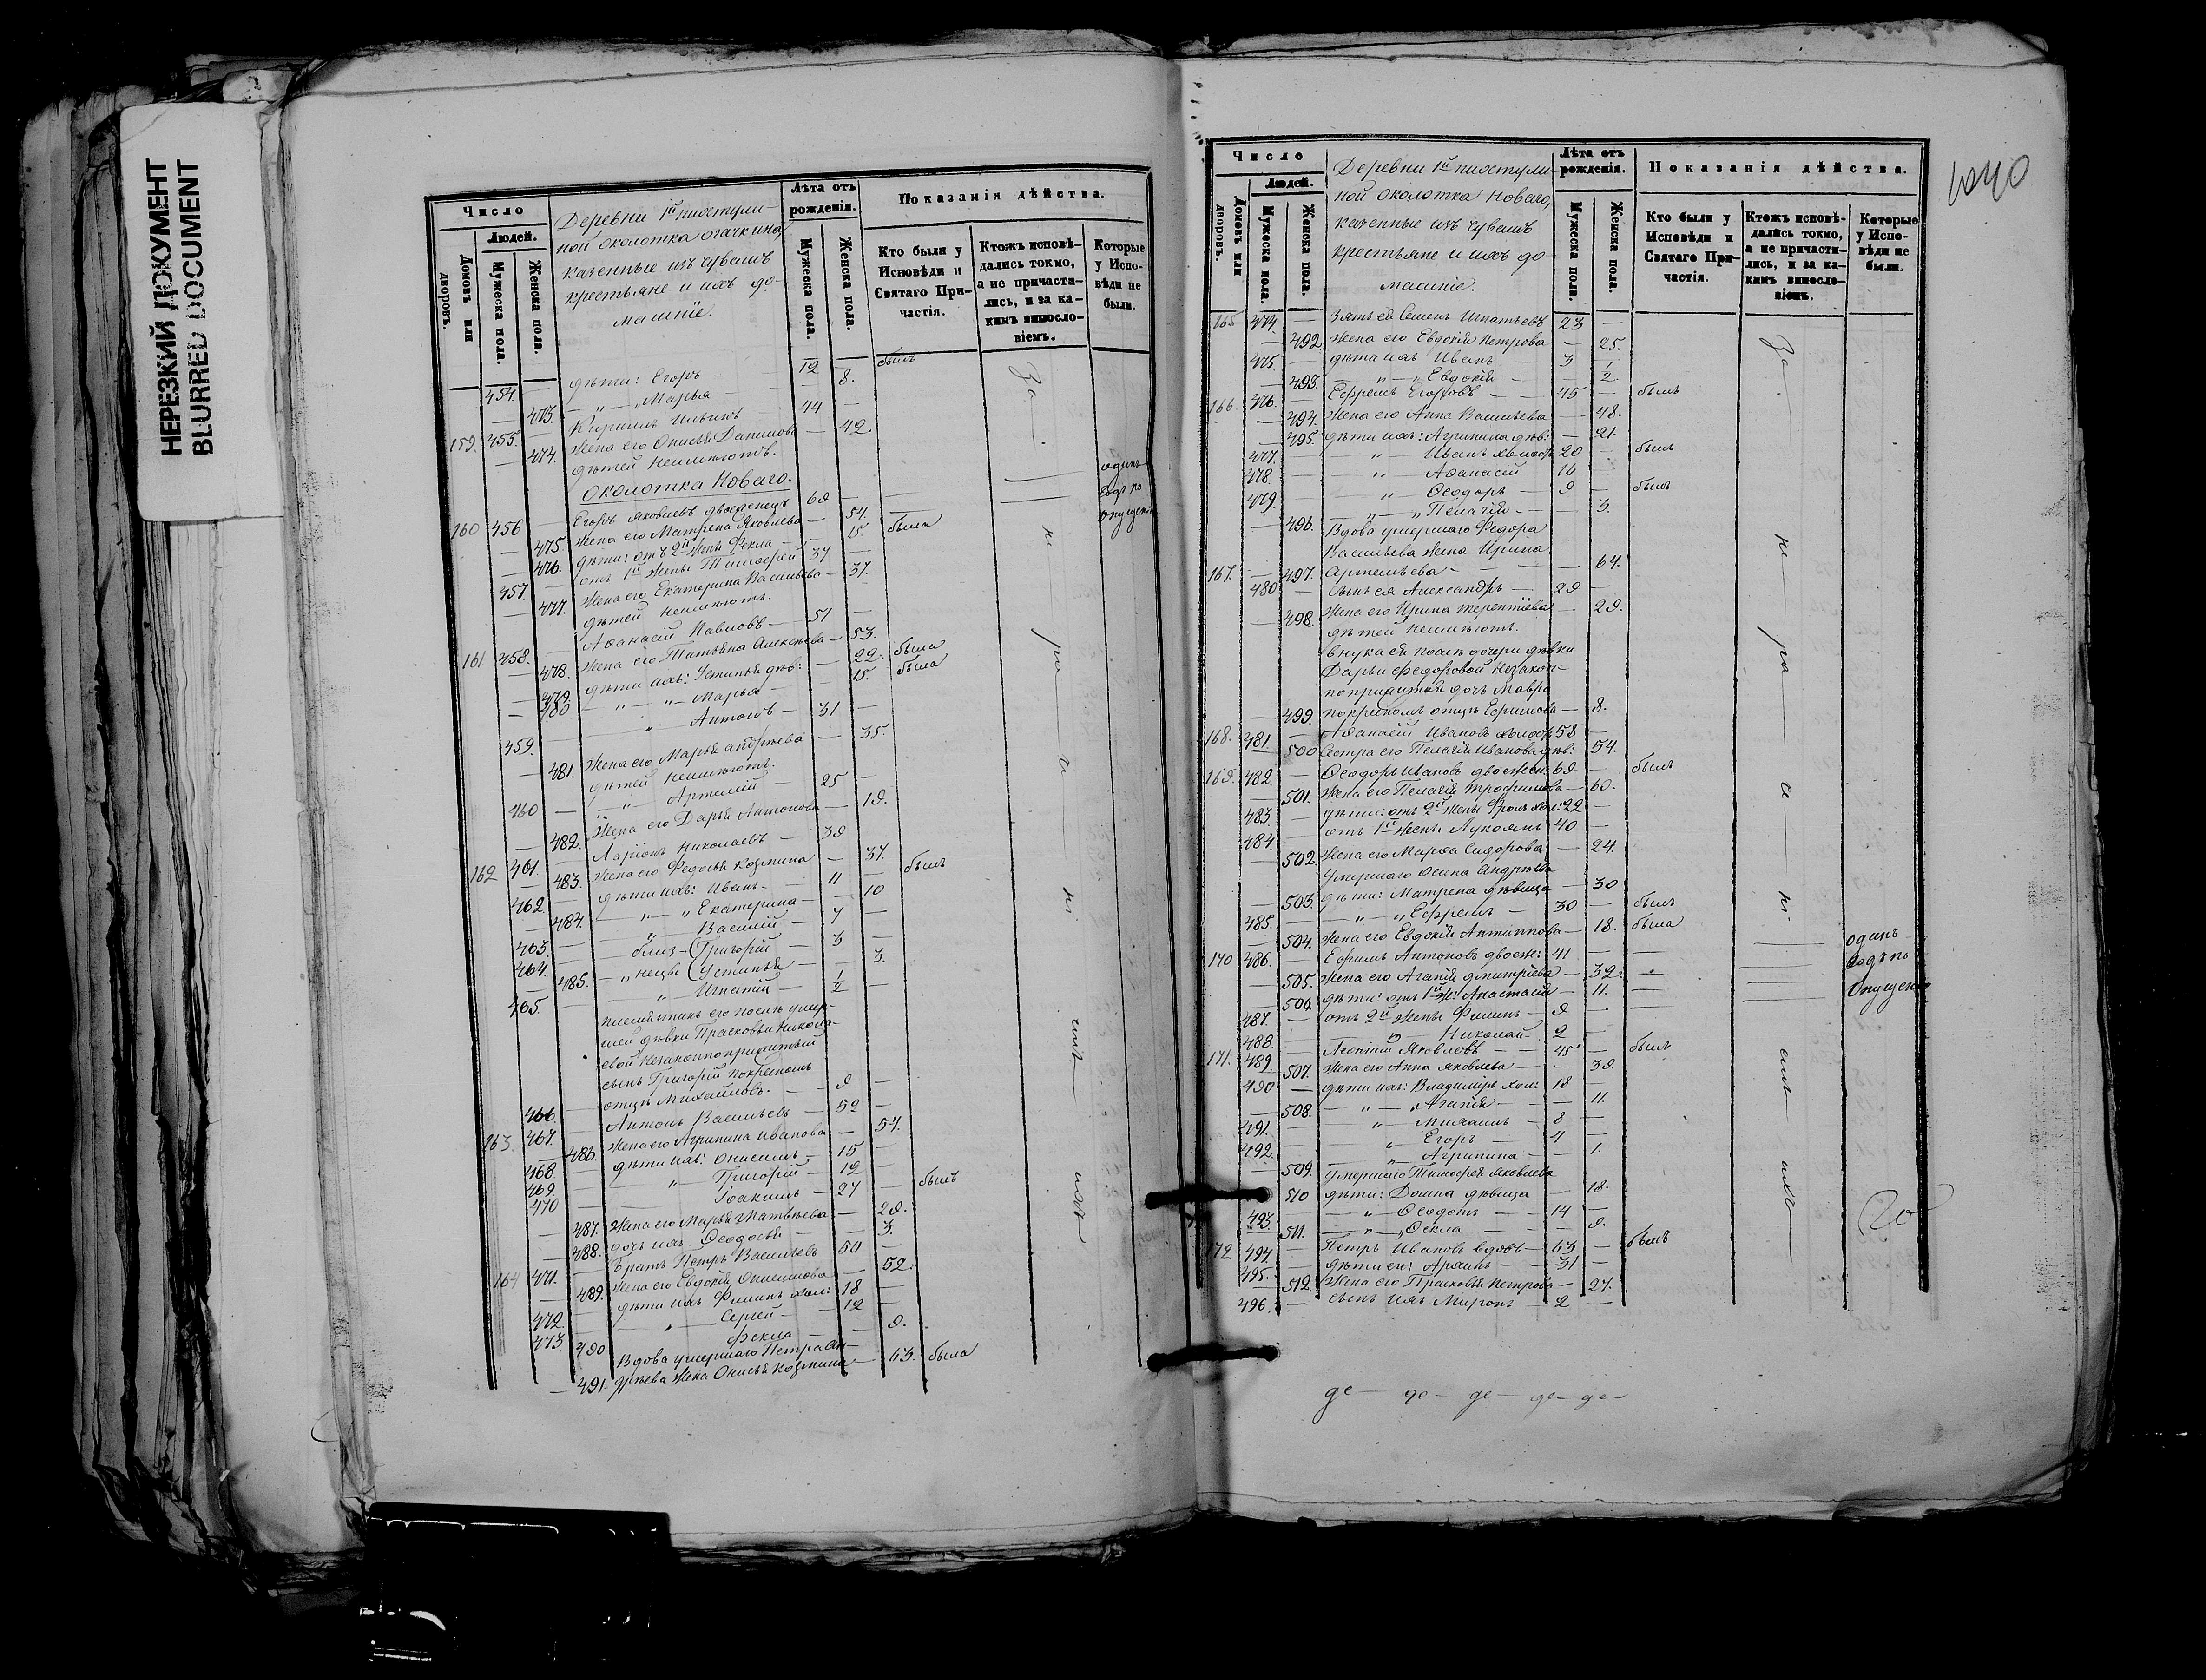 НЕРЕЗКИЙ ДОКУМЕНТ
BLURRED DOCUMENT
Число
Людей.
Домовъ или дворовъ.
Мужеска пола.
Женска пола.
Деревни 1й
ной околотка
казенные изъ чувашъ
крестьяне и ихъ до-
машніе.
Лѣта отъ рожденія.
Мужеска пола.
Женска пола.
Показанія дѣйства.
Кто были у Исповѣди и Святаго Причастія.
Ктожъ исповѣдались токмо, а не причастились, и за какимъ винословіемъ.
Которые у Исповѣди не были.
454. — дѣти: Егоръ — 12 — былъ
— 473. — „ — Марья — — 8.
159. 455. — Кириллъ Ильинъ 44 —
— 474. Жена его Онисья Данилова — 42.
дѣтей неимѣютъ.
Околотка Новаго.
160 456 — Егоръ Яковлевъ двоеженецъ 69 — одинъ
— 475. Жена его Матрена Яковлева — 54. годъ по
— 476. дѣти: отъ 2й жены Фекла — 15. была опущенію
457. — отъ 1й жены Тимофей 37 —
— 477. Жена его Екатерина Васильева — 37.
дѣтей неимѣютъ.
161. 458. — Аѳанасій Павловъ — 51 —
— 478. Жена его Татьяна Алексѣева — 53.
— 479. дѣти ихъ: Устинья дѣв: — 22. была
— 480 — „ — „ Марья — 15. была
459. — „ Антонъ — 31 —
— 481. Жена его Марья Андреева — 35.
дѣтей неимѣютъ.
460 — — „ — Артемій — 25 —
— 482. Жена его Дарья Антонова — 19.
162 461. — Ларіонъ Николаевъ — 39 —
— 483. Жена его Федосья Козмина — 37.
462. — дѣти ихъ: Иванъ — 11 — былъ
— 484. — „ — „ Екатерина — — 10
463. — — „ Василій — 7 —
464. — близ- (Григорій — 3 —
— 485. — „ нецы (Устинья — — 3.
465. — — „ — Игнатій — ½ —
племянникъ его послѣ умер-
шей дѣвки Прасковьи Никола-
евой незаконноприжитый
сынъ Григорій по крестномъ
466. — отцѣ Михайловъ. — 9 —
163. 467. — Антонъ Васильевъ — 52 —
— 486. Жена его Агрипина Иванова — 54.
468. — дѣти ихъ: Онисимъ — 15 —
469. — — „ — Григорій — 12 —
470 — Іоакимъ — 27 — былъ
— 487. Жена его Марья Матвѣева — 29.
— 488. дочь ихъ Ѳеодосья — 3.
164 471. — Братъ Петръ Васильевъ 50 —
— 489. Жена его Евдокія Онисимова — 52.
472. — дѣти ихъ Филипъ хол: 18 —
473. — — „ — Сергей — 12 —
— 490 Фекла — — 9.
Вдова умершаго Петра Ан-
— 491. дрѣева жена Онисья Козмина — 63. была
За не ра
Число
Людей.
Домовъ или дворовъ.
Мужеска пола.
Женска пола.
Деревни 1й
ной околотка Новаго,
казенные изъ чувашъ
крестьяне и ихъ до-
машніе.
Лѣта отъ рожденія.
Мужеска пола.
Женска пола.
Показанія дѣйства.
Кто были у Исповѣди и Святаго Причастія.
Ктожъ исповѣдались токмо, а не причастились, и за какимъ винословіемъ.
Которые у Исповѣди не были.
165 474. — Зять ея Семенъ Игнатьевъ 23 —
— 492 Жена его Евдокія Петрова — 25.
475. — дѣти ихъ Иванъ — 3 —
— 493. — „ — „ Евдокія — — ½
166. 476. — Ефремъ Егоровъ — 45 — былъ
— 494. Жена его Анна Васильева — 48.
— 495. дѣти ихъ: Агрипина дѣв: — 21.
477. — — „ — Иванъ холост 20 — былъ
478. — — „ Аѳанасій 16 —
479. — — „ — Ѳеодоръ — 9 — былъ
— 496. — „ — „ Пелагія — — 3.
Вдова умершаго Федора
Васильева жена Ирина
167. — 497. Артемьева — — 64.
480. — Сынъ ея Александръ — 29 —
— 498. Жена его Ирина Терентіева — 29.
дѣтей неимѣютъ.
внука ея послѣ дочери дѣвки
Дарьи Федоровой незакон-
ноприжитая дочь Мавра
— 499. по крестномъ отцѣ Ефимова — 8.
168. 481. — Аѳанасій Ивановъ холост 58 —
— 500 Сестра его Пелагія Иванова дѣв: 54.
169. 482. — Ѳеодоръ Ивановъ двоежен: 69 — былъ
— 501. Жена его Пелагія Трофимова — 60.
483. — дѣти: отъ 2й жены Фролъ хол: 22 —
484. — отъ 1й жены Лукоянъ 40 —
— 502. Жена его Марѳа Сидорова — 24.
умершаго Осипа Андрѣева
— 503. дѣти: Матрена дѣвица — 30
485. — — „ — „ Ефремъ — 30 — былъ
— 504. Жена его Евдокія Антипова — 18. была
170 486. — Ефимъ Антоновъ двоеж: 41 — одинъ
— 505. Жена его Агапія Дмитріева — 32. годъ по
— 506. дѣти: отъ 1й ж: Анастасія — 11. опущенію
487. — отъ 2й жены Филипъ — 9 —
488. — Николай — 2 —
171. 489. — Леонтій Яковлевъ — 45 — былъ
— 507. Жена его Анна Яковлева — 39.
490 — дѣти ихъ: Владиміръ хол: 18 —
— 508. — „ — „ Агапія — — 11.
491. — „ — Михаилъ — 8 —
492. — „ Егоръ — 4 —
— 509. „ Агрипина — — 1.
умершаго Тимофея Яковлева
— 510 дѣти: Домна дѣвица — 18.
493. — — „ — Ѳеодотъ — 14 —
— 511. — „ — „ Ѳекла — — 9.
172 494. — Петръ Ивановъ вдовъ — 63 — былъ
495. — дѣти его: Архипъ — 31 —
— 512. Жена его Прасковья Петрова — 27.
496. — сынъ ихъ Миронъ — 2 —
За не ра